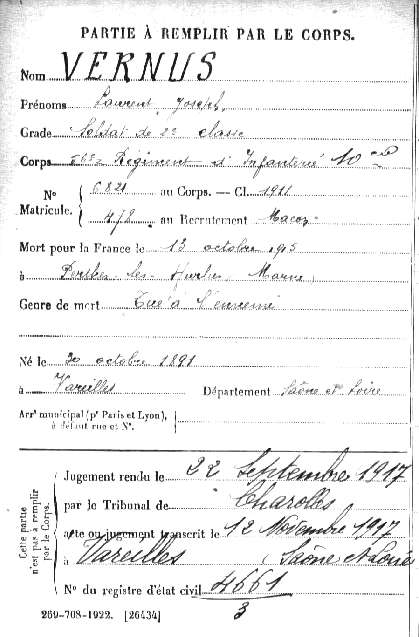 PARTIE À REMPLIR PAR LE CORPS.
Nom VERNUS
Prénoms Laurent Joseph
Grade Soldat de 2e classe
Corps 56e Régiment d'Infanterie 10e Cie
N° Matricule. { 6821 au Corps. — Cl. 1911
478 au Recrutement Macon
Mort pour la France le 13 octobre 1915
à Perthes les Hurlus Marne
Genre de mort Tué à l'ennemi
Né le 20 octobre 1891
à Vareilles Département Saône et Loire
Arrt municipal (pr Paris et Lyon),
à défaut rue et N°.
Cette partie n'est pas à remplir par le Corps.
Jugement rendu le 22 Septembre 1917
par le Tribunal de Charolles
acte ou jugement transcrit le 12 Novembre 1917
à Vareilles (Saône et Loire
N° du registre d'état civil 4661
3
269-708-1922. [26434]